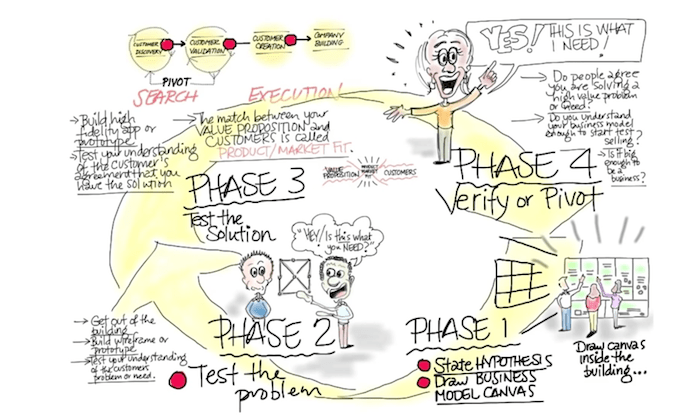 CUSTOMER
DISCOVERY
CUSTOMER
VALIDATION
CUSTOMER
CREATION
COMPANY
BUILDING
PIVOT
SEARCH
EXECUTION
YES! THIS IS WHAT
I NEED!
→ Do people agree
you are solving a
high value problem
or need?
→ Do you understand
your business model
enough to start test
selling?
→ Is it big
enough to
be a
business?
→ Build high
fidelity app or
prototype
→ Test your understanding
of the customer's
agreement that you
have the solution
→ The match between your
VALUE PROPOSITION and
CUSTOMERS is called
PRODUCT/MARKET FIT.
VALUE
PROPOSITION
PRODUCT
MARKET
FIT
CUSTOMERS
PHASE 3
Test the
Solution
PHASE 4
Verify or Pivot
"HEY! Is this what
you NEED?"
→ Get out of the
building
→ Build wireframe or
prototype
→ Test your understanding
of the customers
problem or need.
PHASE 2
Test the
problem
PHASE 1
State HYPOTHESIS
Draw BUSINESS
MODEL CANVAS
Draw canvas
inside the
building...